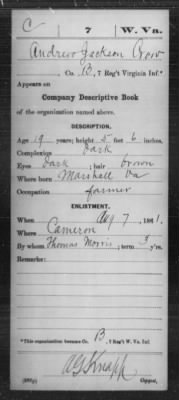 C 7 W. Va.
Andrew Jackson Crow
, Co. B, 7 Reg't Virginia Inf.*
Appears on
Company Descriptive Book
of the organization named above.
DESCRIPTION.
Age 19 years; height 5 feet 6 inches.
Complexion Dark
Eyes Dark ; hair brown
Where born Marshall Va
Occupation farmer
ENLISTMENT.
When Aug 7, 1861.
Where Cameron
By whom Thomas Morris; term 3 y'rs.
Remarks:
*This organization became Co. B, 7 Reg't W. Va. Inf.
A G Knapp
Copyist.